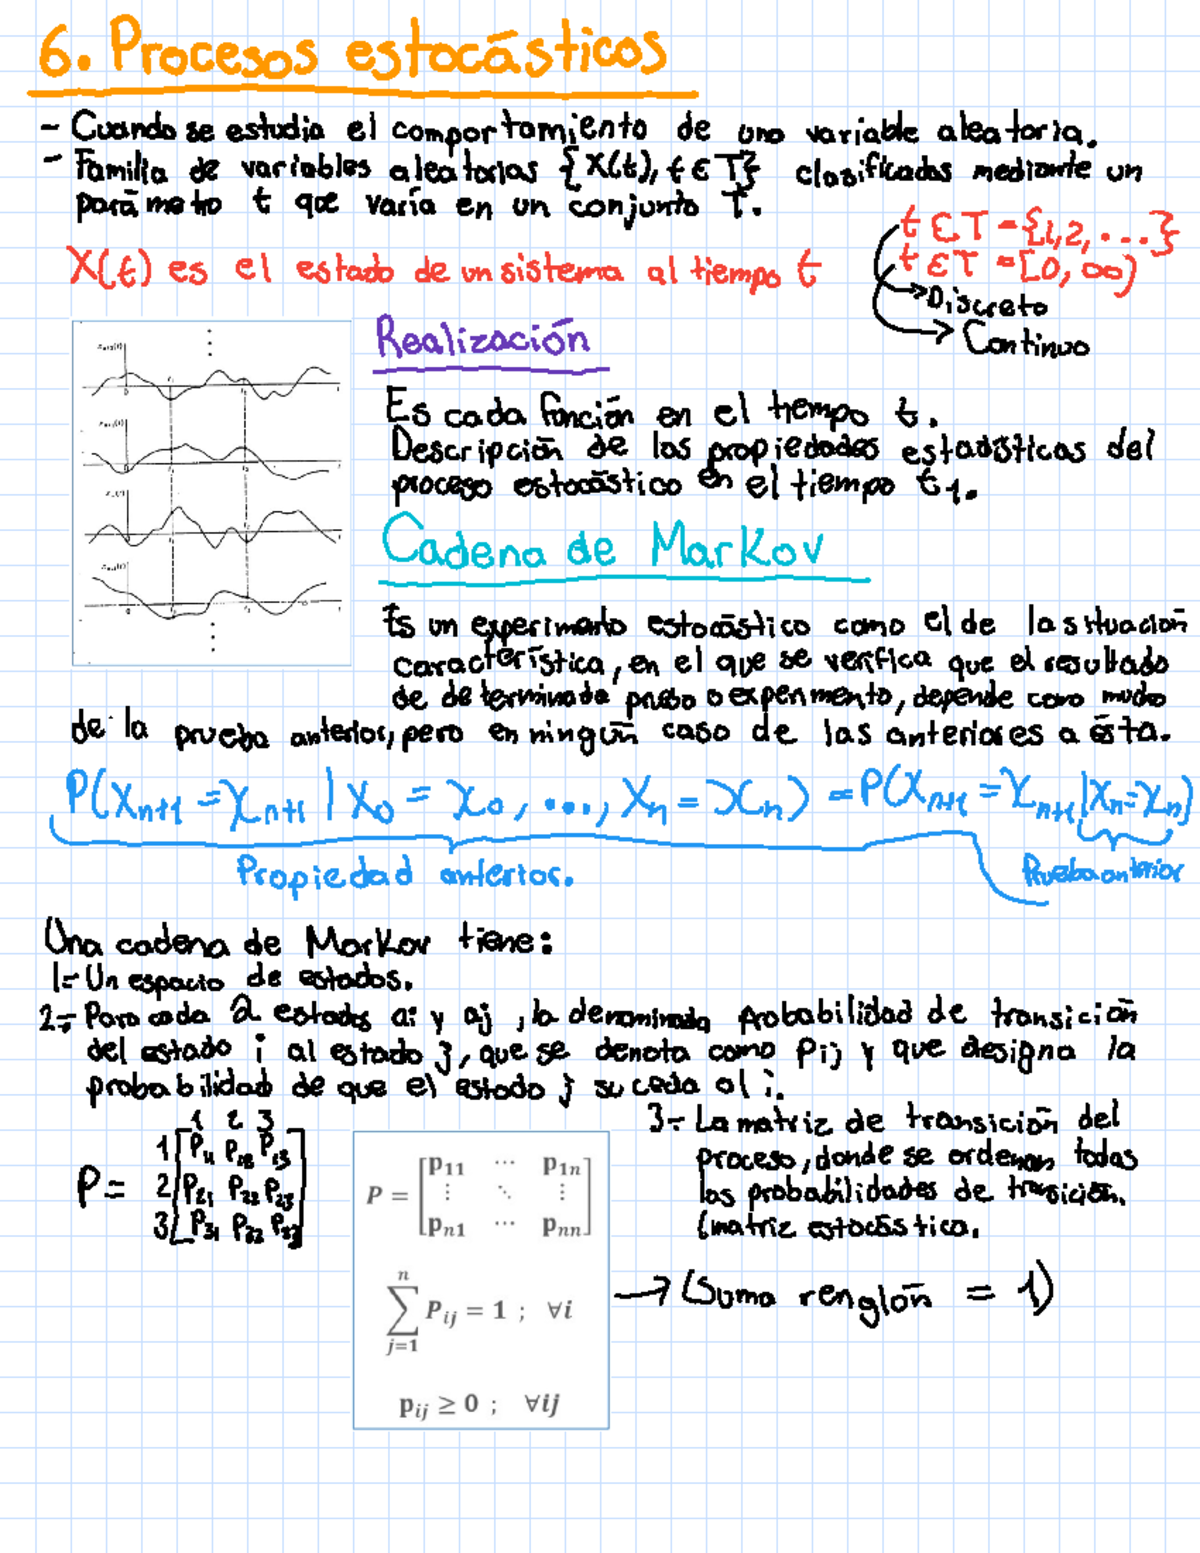 6. Procesos estocásticos
- Cuando se estudia el comportamiento de una variable aleatoria.
- Familia de variables aleatorias {X(t), t ∈ T} clasificadas mediante un
parámetro t que varía en un conjunto T.
t ∈ T = {1,2, ...}
X(t) es el estado de un sistema al tiempo t
t ∈ T = [0, ∞)
→ Discreto
→ Continuo
Realización
Es cada función en el tiempo t.
Descripción de las propiedades estadísticas del
proceso estocástico en el tiempo t1.
Cadena de Markov
Es un experimento estocástico como el de la situación
característica, en el que se verifica que el resultado
de determinada prueba o experimento, depende como mucho
de la prueba anterior, pero en ningún caso de las anteriores a ésta.
P(Xn+1 = xn+1 | X0 = x0, ..., Xn = xn) = P(Xn+1 = xn+1 | Xn = xn)
Propiedad anterior.
Prueba anterior
Una cadena de Markov tiene:
1.- Un espacio de estados.
2.- Para cada 2 estados ai y aj, la denominada probabilidad de transición
del estado i al estado j, que se denota como Pij y que designa la
probabilidad de que el estado j suceda al i.
1 2 3
1 [P11 P12 P13]
P = 2 [P21 P22 P23]
3 [P31 P32 P33]
P = [p11 ⋯ p1n
⋮ ⋱ ⋮
pn1 ⋯ pnn]
3.- La matriz de transición del
proceso, donde se ordenan todas
las probabilidades de transición.
(matriz estocástica.
n
∑ Pij = 1 ; ∀i
j=1
→ (Suma renglón = 1)
pij ≥ 0 ; ∀ij